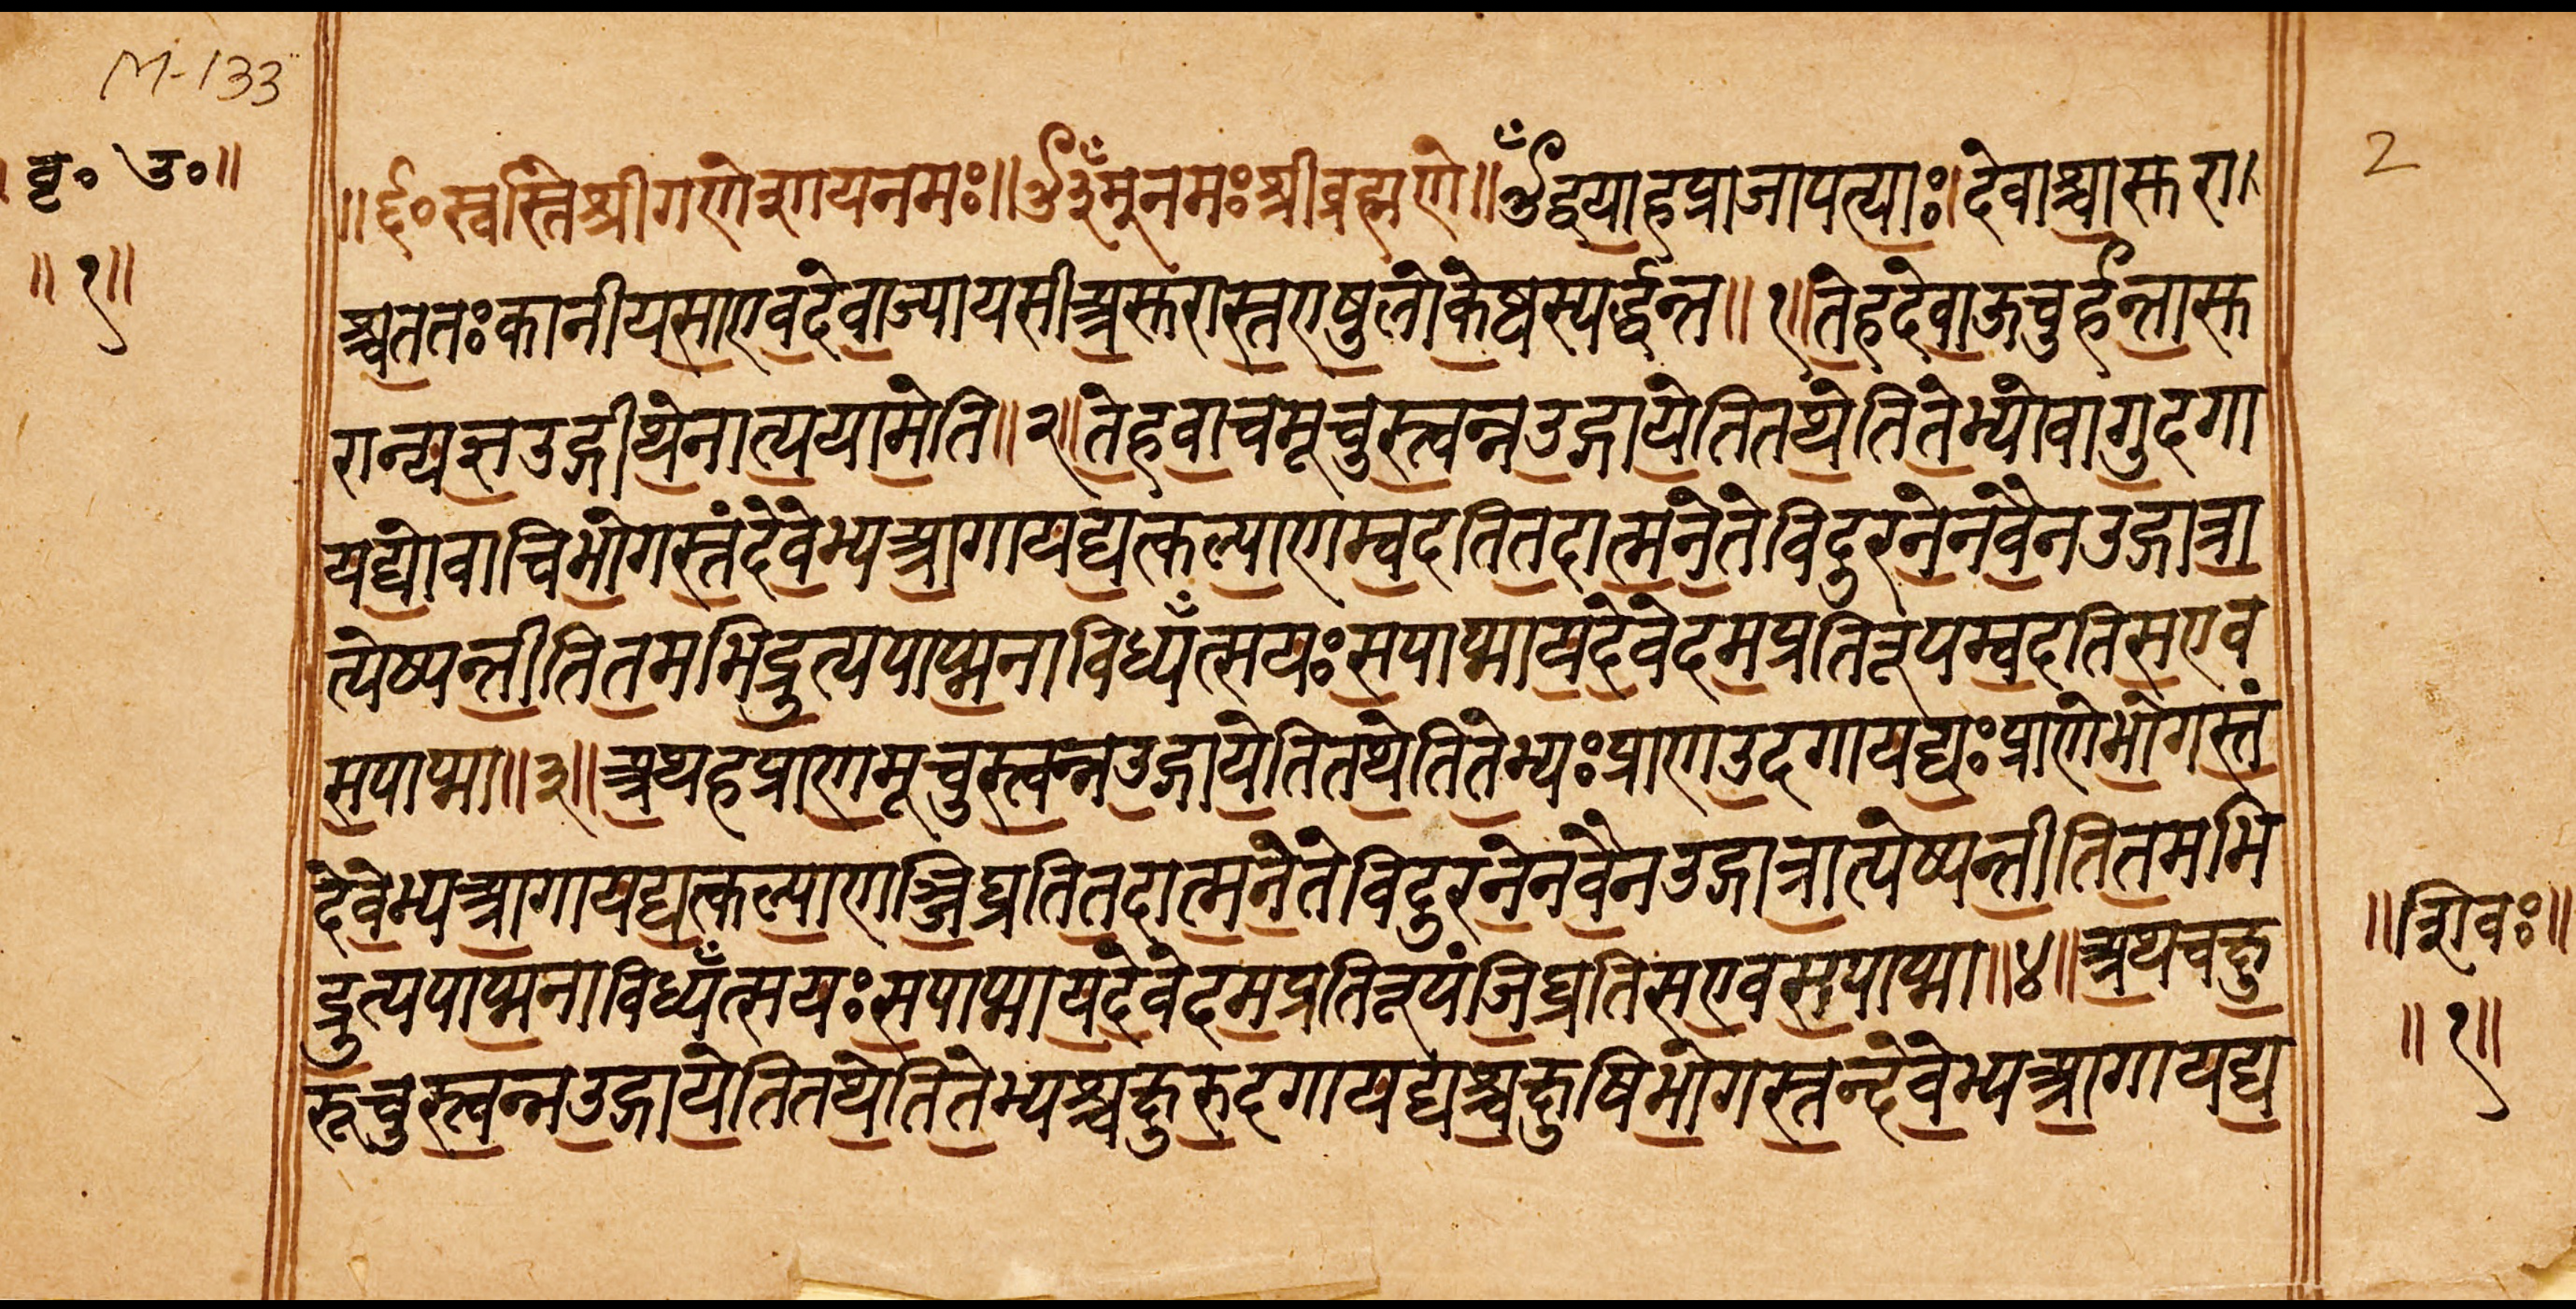 M-133
बृ० उ०॥
॥१॥
2
॥र्द्द०स्वस्तिश्रीगणेशायनमः॥ॐनमःश्रीब्रह्मणे॥ॐद्वयाहप्राजापत्याः।देवाश्चासुरा॥
श्चततःकानीयसाएवदेवाज्यायसीअसुरास्तएषुलोकेष्वस्पर्द्धन्त॥१॥तेहदेवाऊचुर्हन्तासु
रान्यज्ञउद्गीथेनात्ययामेति॥२॥तेहवाचमूचुस्त्वन्नउद्गायेतितथेतितेभ्योवागुदगा
यद्योवाचिभोगस्तंदेवेभ्यआगायद्यत्कल्याणम्वदतितदात्मनेतेविदुरनेनवैनउद्गात्रा
त्येष्यन्तीतितमभिद्रुत्यपाप्मनाविध्यँत्सयःसपाप्मायदेवेदमप्रतिरूपम्वदतिसएव
सपाप्मा॥३॥अथहप्राणमूचुस्त्वन्नउद्गायेतितथेतितेभ्यःप्राणउदगायद्यःप्राणेभोगस्तं
देवेभ्यआगायद्यत्कल्याणञ्जिघ्रतितदात्मनेतेविदुरनेनवैनउद्गात्रात्येष्यन्तीतितमभि
द्रुत्यपाप्मनाविध्यँत्सयःसपाप्मायदेवेदमप्रतिरूपंजिघ्रतिसएवसपाप्मा॥४॥अथचक्षु
रूचुस्त्वन्नउद्गायेतितथेतितेभ्यश्चक्षुरुदगायद्यश्चक्षुषिभोगस्तन्देवेभ्यआगायद्य
॥शिवः॥
॥१॥